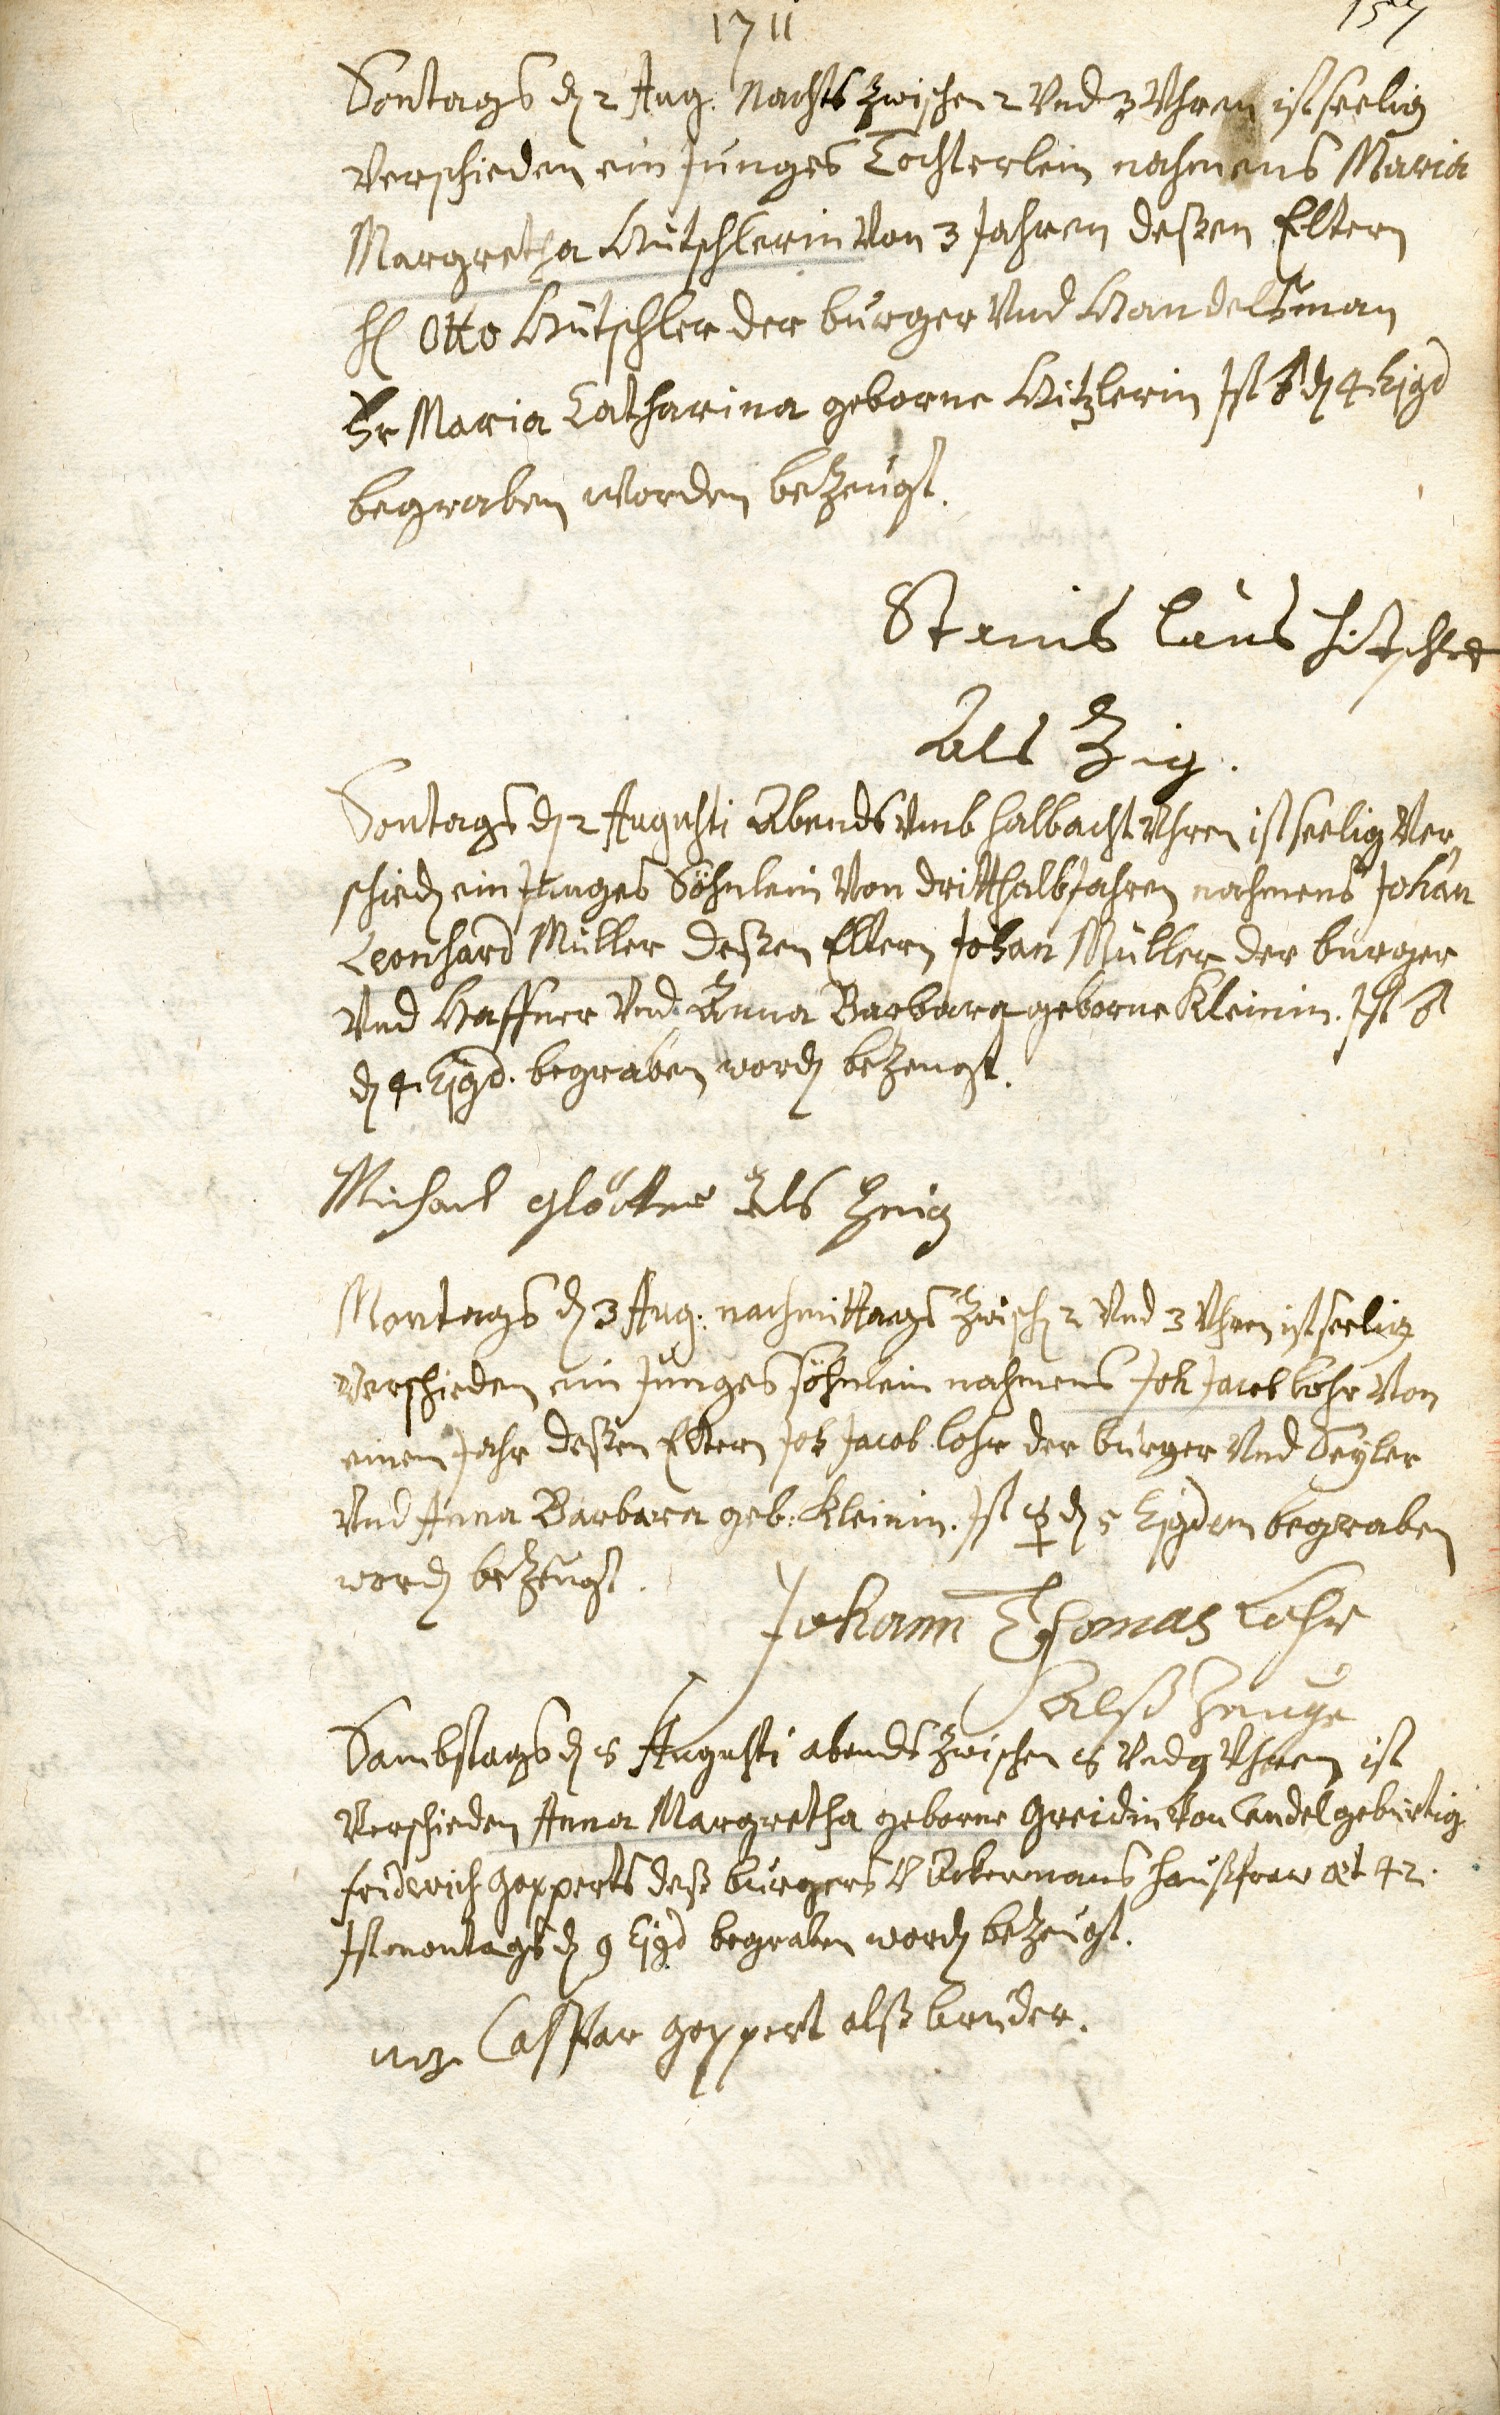 1711
157
Sontags d 2 Aug. Nachts zwischen 2 Vnd 3 Vhren ist seelig
Verschieden ein Junges Tochterlein nahmens Maria
Margretha Hütschlerin Von 3 Jahren deßen Eltern
H Otto Hütschler der burger Vnd Handelsman
Fr Maria Catharina geborne Hitzlerin Ist ♂ d 4 Ejgd
begraben worden bezeugt.
Stanis laus hitschler
Als Zig.
Sontags d 2 Augusti Abends Vmb halb acht Vhren ist seelig Ver,
schied ein Junges Söhnlein Von dritthalb Jahren nahmens Johan
Leonhard Müller deßen Eltern Johan Müller der burger
Vnd Haffner Vnd Anna Barbara geborne Kleinin. Ist ♂
d 4 Ejgd. begraben word bezeugt.
Michael Als Zeig
Montags d 3 Aug: nachmittags Zwisch 2 Vnd 3 Vhren ist seelig
Verschieden ein Junges söhnlein nahmens Joh Jacob Lohr Von
einem Jahr deßen Eltern Joh Jacob Lohr der burger Vnd Seyler
Vnd Anna Barbara geb: Kleinin. Ist ☿ d 5 Ejgdem begraben
word bezeugt.
Johann Thomas Lohr
Alß Zeuge
Sambstags d 8 Augusti abends Zwischen 8 Vnd 9 Vhren ist
Verschieden Anna Margretha geborne Greidin Von Candel gebürtig
friderich Gopperts deß burgers V Ackermans haußfraw æt 42.
Ist montags d 9 Ejgd begraben word bezeugt.
Caspar Goppert alß bruder.